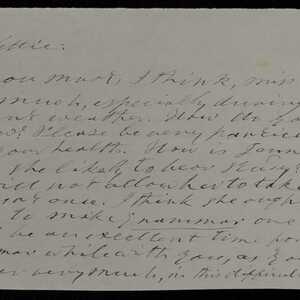 ettie:
ou must, I think, miss
much, especially during
weather. How do you
? Please be very particu
our health. How is Jenn
she likely to hear
ill not allow her to tak
at once. I think she ough
to make grammar one
be an excellent time for
mar while with you, as you
her very much, in this difficul